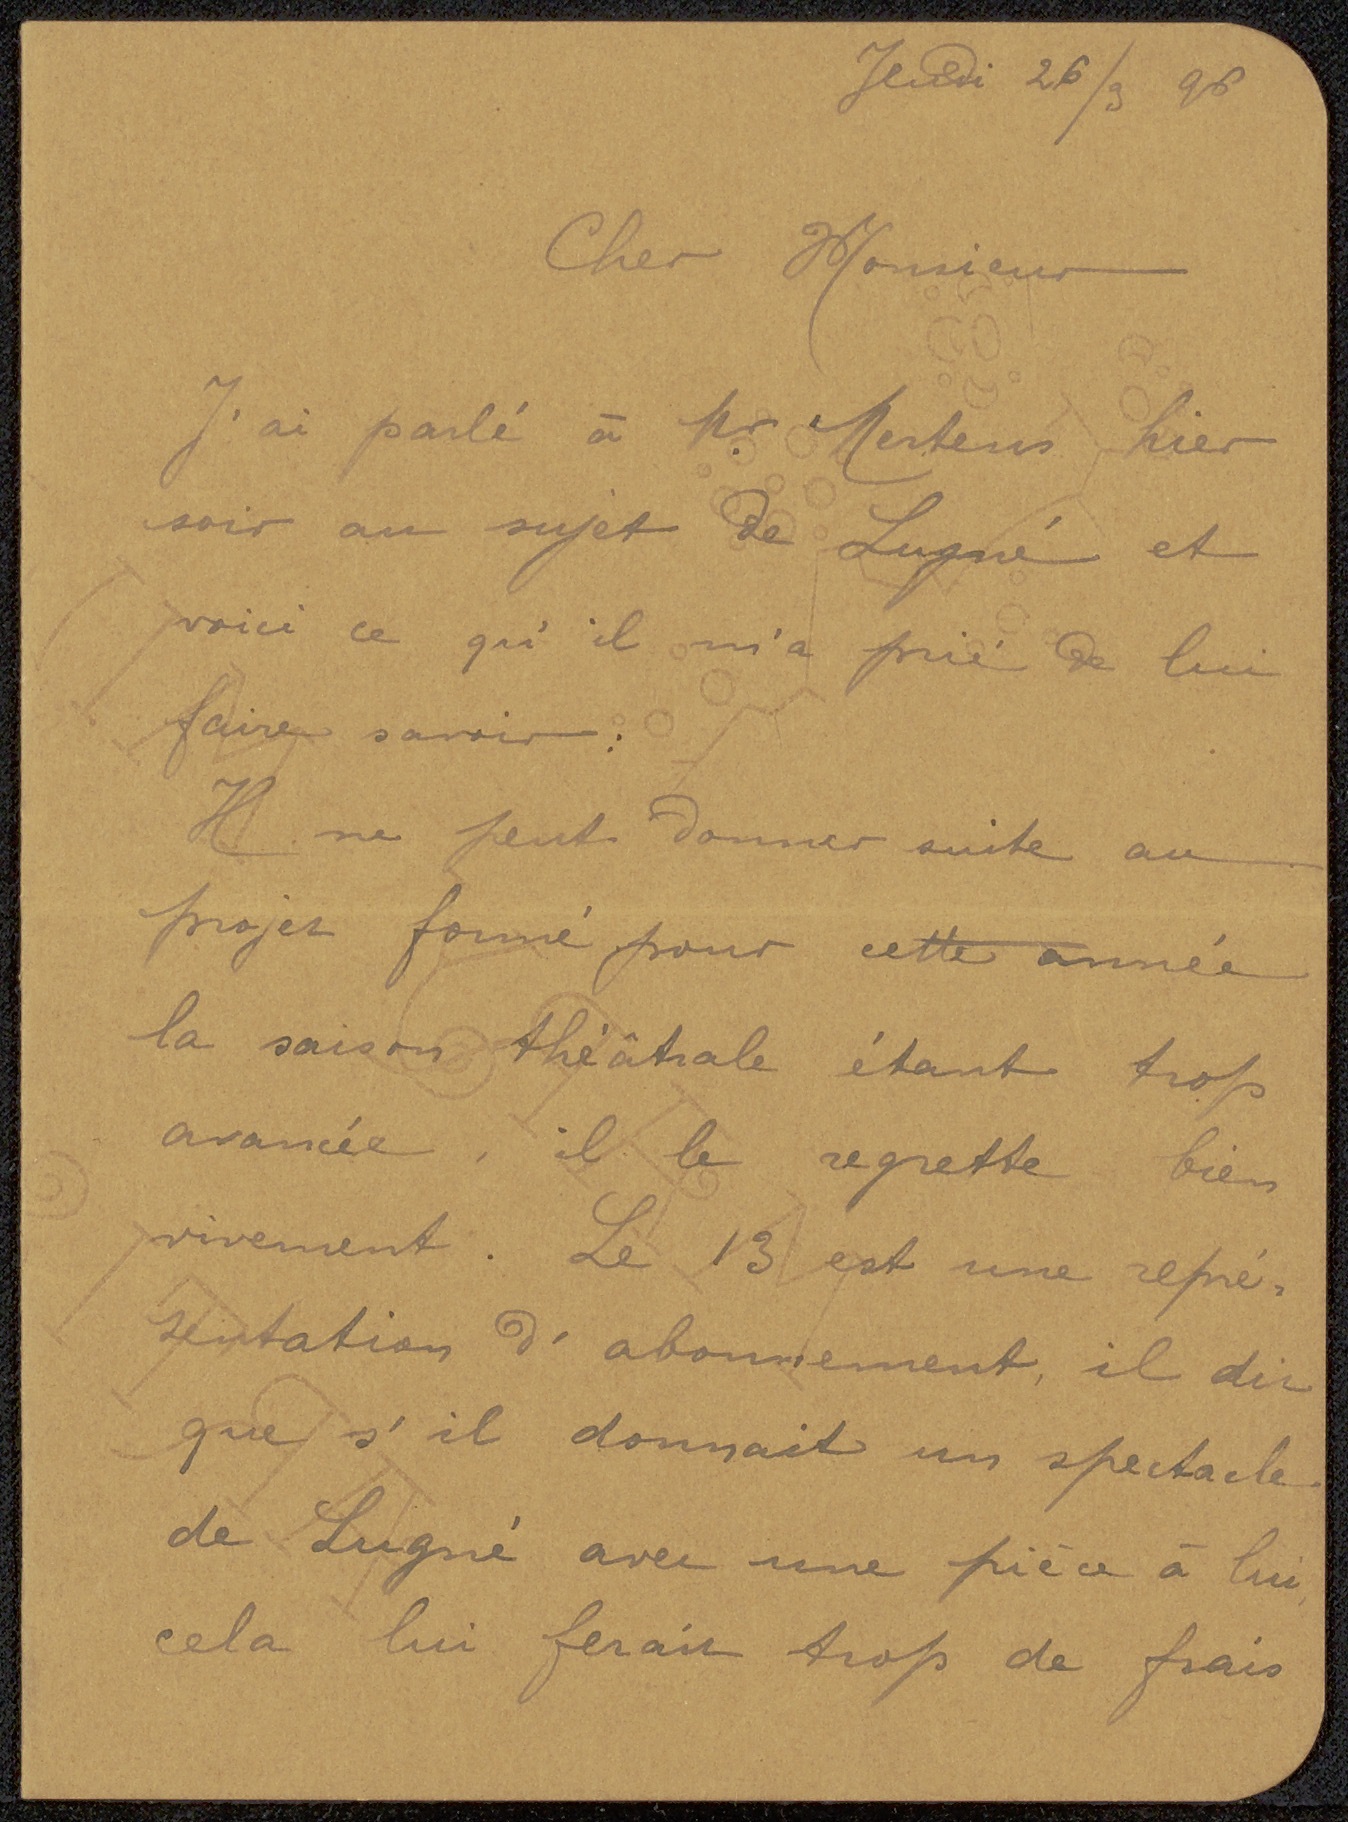 Jeudi 26/3 96
Cher Monsieur
J'ai parlé à Mr Mertens hier
soir au sujet de Lugné et
voici ce qu'il m'a prié de lui
faire savoir :
Il ne peut donner suite au
projet formé pour cette année
la saison théâtrale étant trop
avancée, il le regrette bien
vivement. Le 13 est une repré-
sentation d'abonnement, il dit
que s'il donnait un spectacle
de Lugné avec une pièce à lui,
cela lui ferait trop de frais